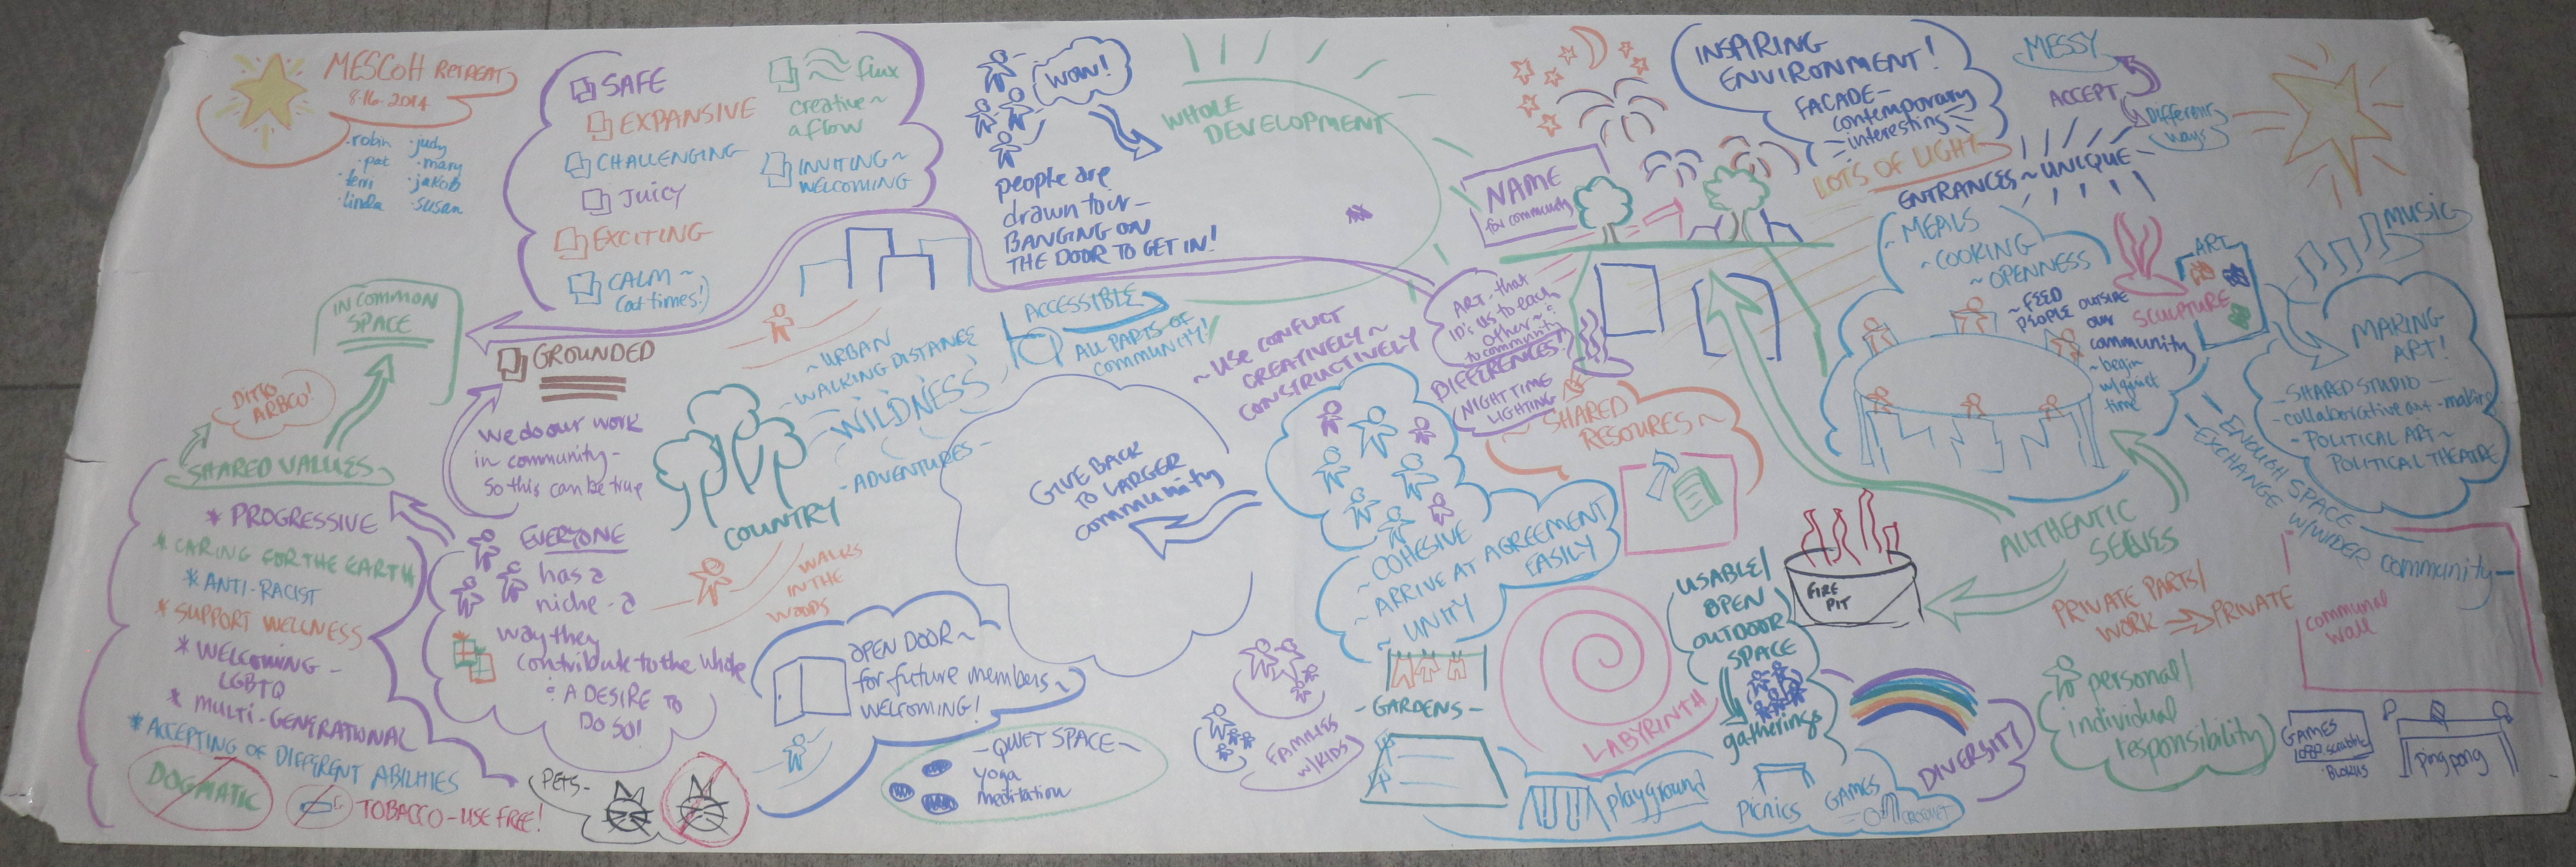 MESCOH RETREAT
8·16·2014
·robin ·judy
·pat ·mary
·terri ·jakob
·linda ·susan
SAFE
EXPANSIVE
CHALLENGING
JUICY
EXCITING
CALM ~
(at times!)
flux
creative ~
a flow
INVITING ~
WELCOMING
GROUNDED
we do our work
in community -
so this can be true
IN COMMON
SPACE
DITTO
ARBCO!
SHARED VALUES
* PROGRESSIVE
* CARING FOR THE EARTH
* ANTI-RACIST
* SUPPORT WELLNESS
* WELCOMING -
LGBTQ
* MULTI-GENERATIONAL
* ACCEPTING OF DIFFERENT ABILITIES
DOGMATIC
TOBACCO-USE FREE!
EVERYONE
has a
niche - a
way they
contribute to the whole
& A DESIRE TO
DO SO!
PETS-
WOW!
people are
drawn to us -
BANGING ON
THE DOOR TO GET IN!
WHOLE
DEVELOPMENT
~ URBAN
- WALKING DISTANCE
WILDNESS
- ADVENTURES -
COUNTRY
WALKS
IN THE
WOODS
ACCESSIBLE
ALL PARTS OF
COMMUNITY!
OPEN DOOR ~
for future members ~
WELCOMING!
- QUIET SPACE -
yoga
meditation
GIVE BACK
TO LARGER
community
~ USE CONFLICT
CREATIVELY ~
CONSTRUCTIVELY
ART - that
ID's us to each
other &
to community
DIFFERENCES!
NIGHT TIME
LIGHTING
~ COHESIVE
~ ARRIVE AT AGREEMENT
EASILY
~ UNITY
FAMILIES
w/KIDS
~ SHARED
RESOURES ~
- GARDENS -
LABYRINTH
USABLE/
OPEN
OUTDOOR
SPACE
gatherings
playground
picnics
GAMES
CROQUET
FIRE
PIT
DIVERSITY
NAME
for community
INSPIRING
ENVIRONMENT!
FACADE -
contemporary
interesting
LOTS OF LIGHT
ENTRANCES ~ UNIQUE
MESSY
ACCEPT
DIFFERENT
WAYS
~ MEALS
~ COOKING
~ OPENNESS
~ FEED
PEOPLE OUTSIDE
our
community
~ begin
w/quiet
time
ART
SCULPTURE
MUSIC
MAKING
ART!
- SHARED STUDIO -
- collaborative art-making
- POLITICAL ART ~
POLITICAL THEATRE
- ENOUGH SPACE
EXCHANGE W/WIDER community -
AUTHENTIC
SELVES
PRIVATE PARTS/
WORK → PRIVATE
communal
wall
personal/
individual
responsibility
GAMES
BLOKUS
ping pong